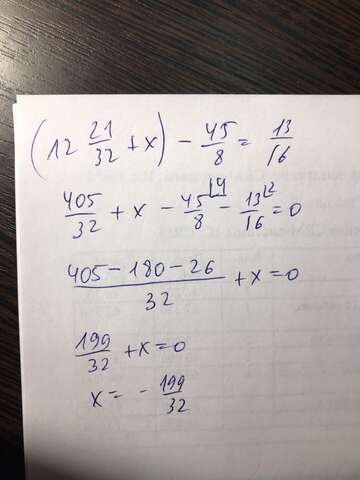 (12 21/32 + x) - 45/8 = 13/16
405/32 + x - 45/8 |4 - 13/16 |2 = 0
405 - 180 - 26/32 + x = 0
199/32 + x = 0
x = - 199/32